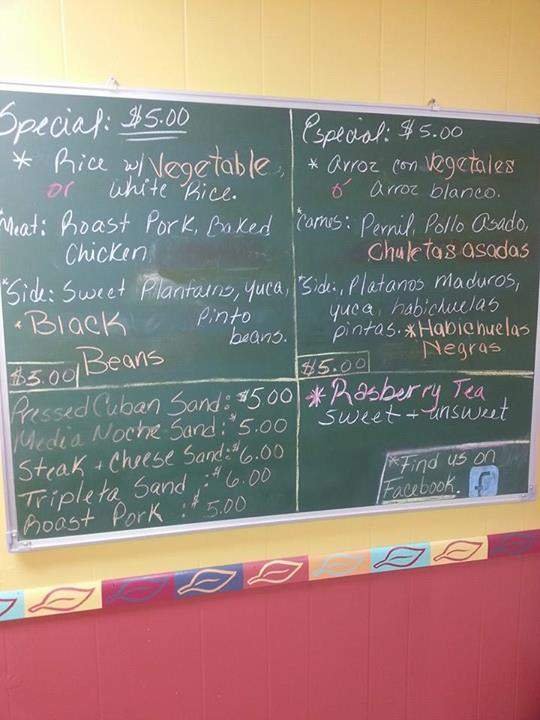 Special: $5.00
* Rice w/ Vegetable,
or white Rice.
*Meat: Roast Pork, Baked
Chicken
*Side: Sweet Plantains, yuca,
* Black Pinto
beans.
Beans
$5.00
Especial: $5.00
* Arroz con vegetales
o' Arroz blanco.
*Carnes: Pernil, Pollo Asado,
Chuletas asadas
*Side:, Platanos Maduros,
yuca, habichuelas
pintas. *Habichuelas
Negras
$5.00
Pressed Cuban Sand: $5.00
Media Noche Sand: $5.00
Steak + Cheese Sand: $6.00
Tripleta Sand : $6.00
Roast Pork : $5.00
*Rasberry Tea
Sweet + unsweet
*Find us on
Facebook. f